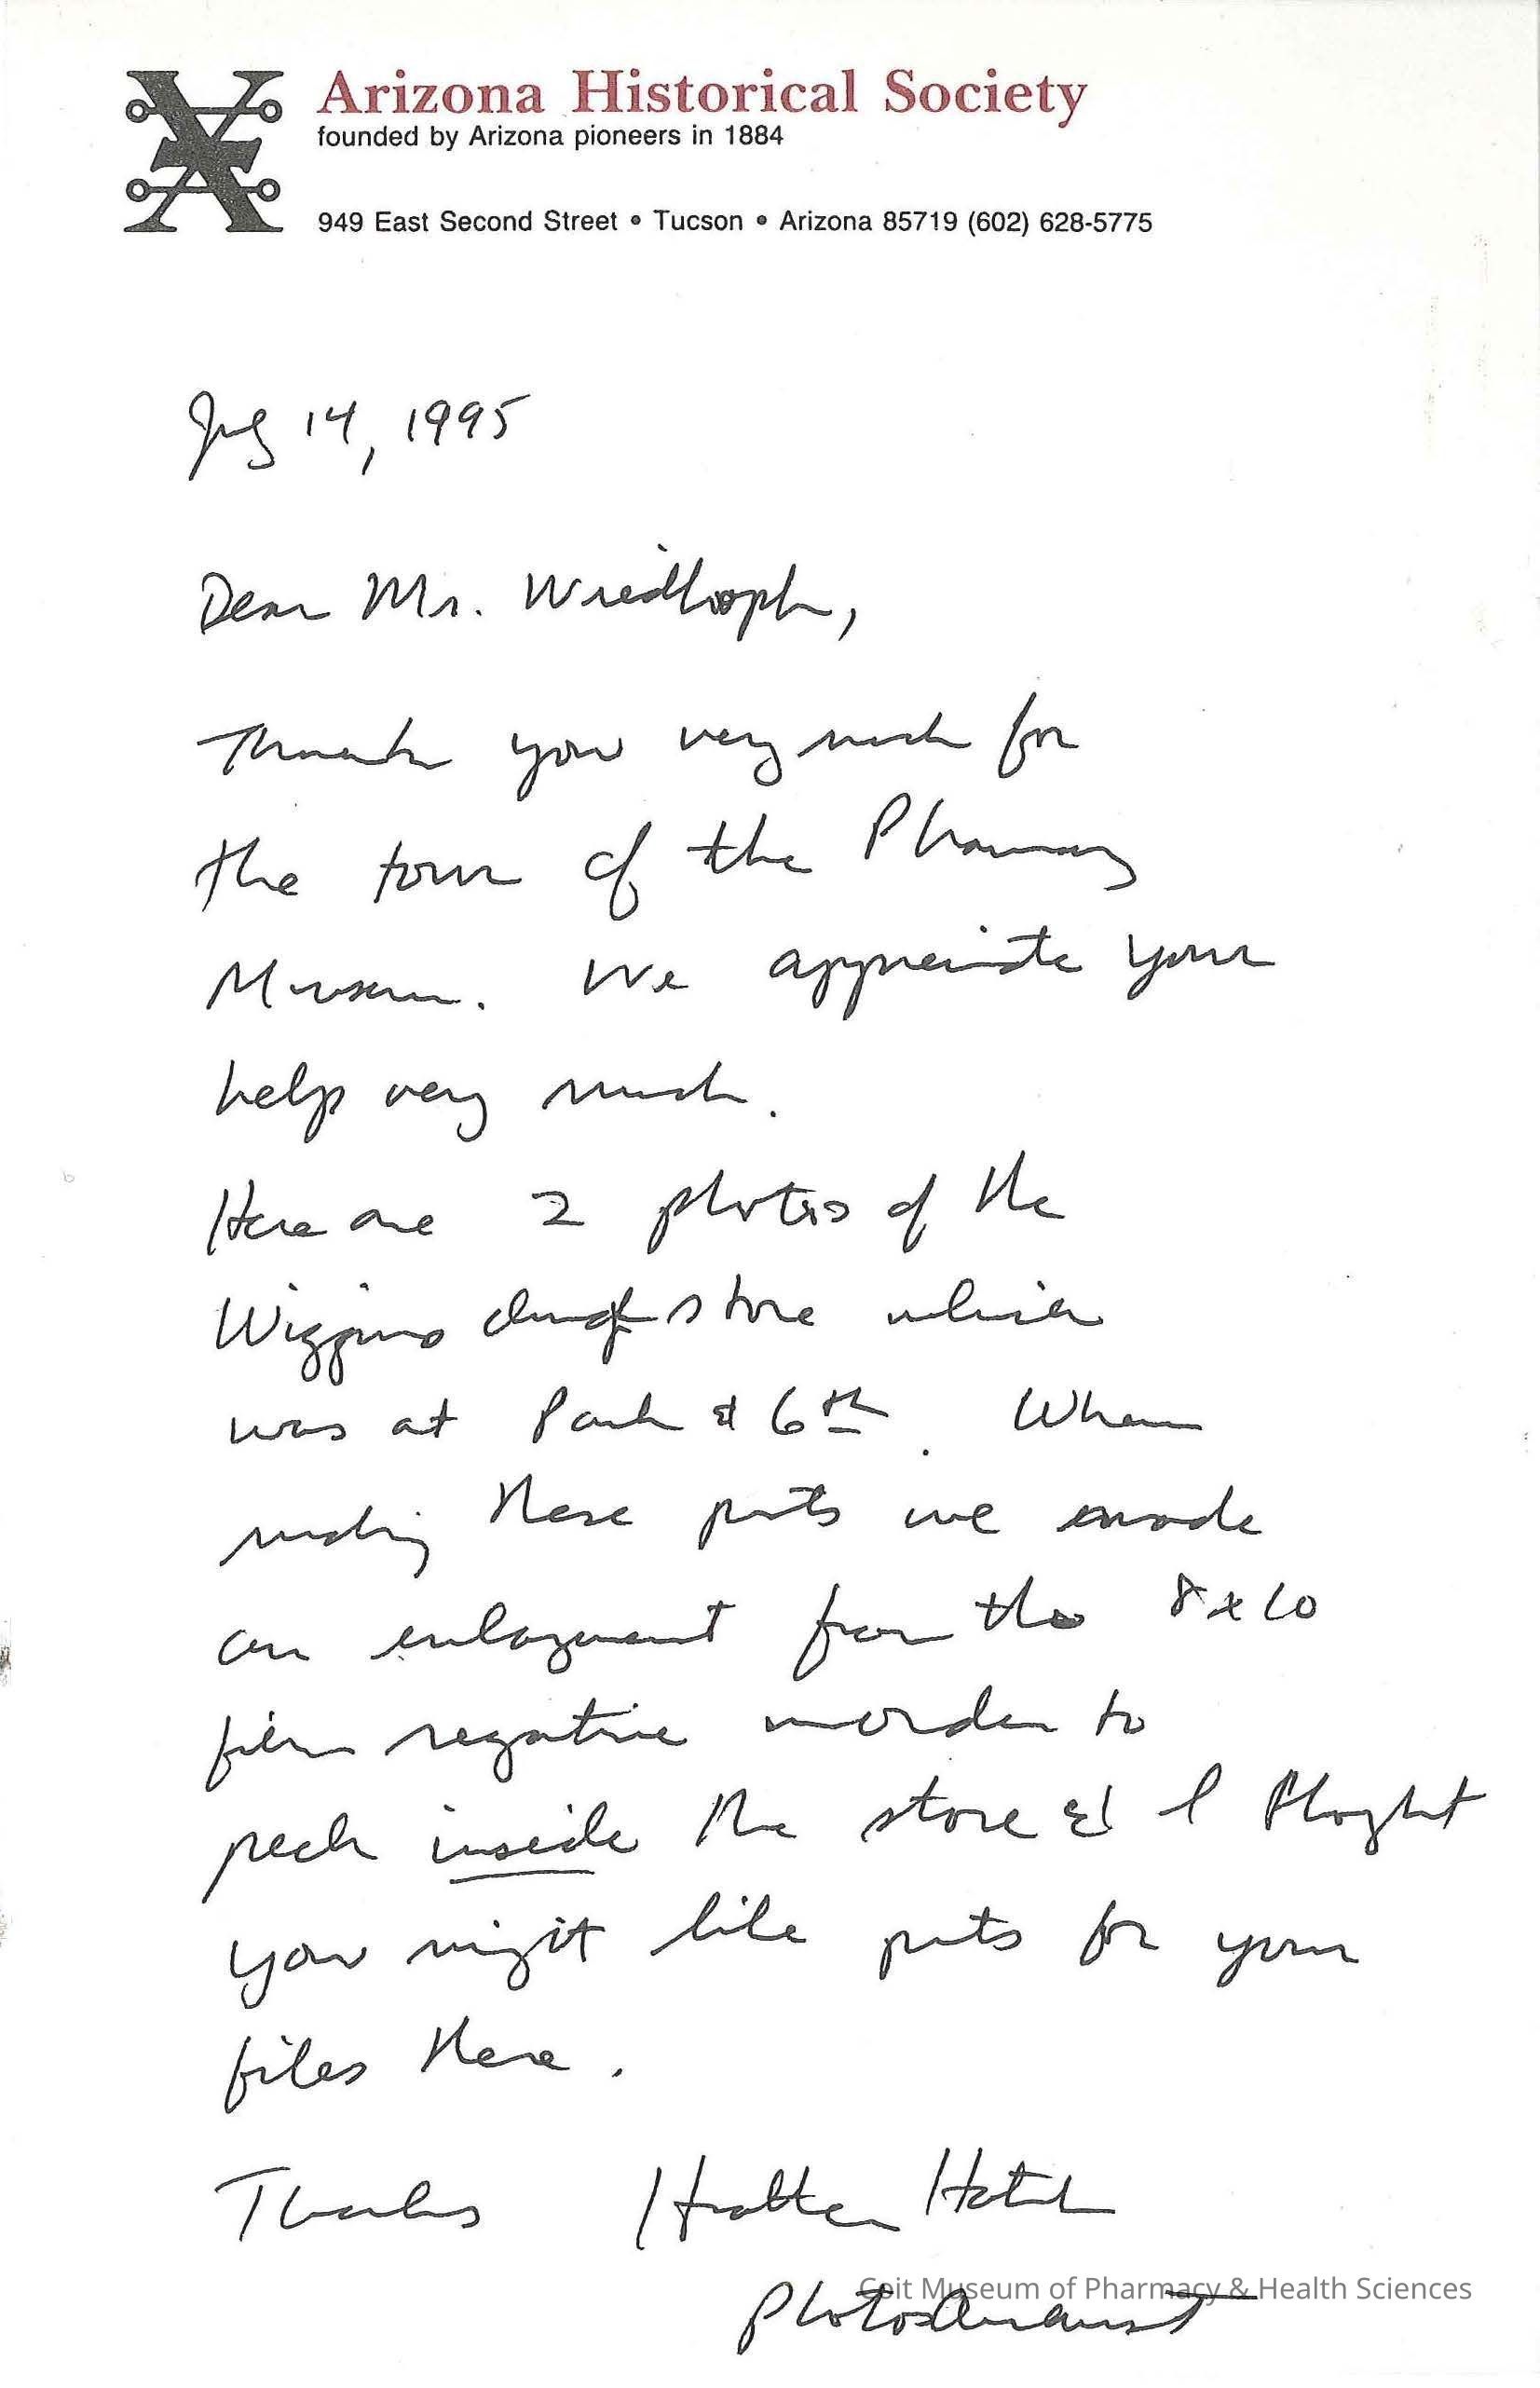 Arizona Historical Society
founded by Arizona pioneers in 1884
949 East Second Street • Tucson • Arizona 85719 (602) 628-5775
July 14, 1995
Dear Mr.
Thank you very much for
the tour of the Pharmacy
Museum. We appreciate your
help very much.
Here are 2 photos of the
Wiggins drug store which
was at Park & 6th. When
making these prints we made
an enlargement from the 8x10
film negative in order to
peek inside the store & I thought
you might like prints for your
files there.
Thanks Heather Hatch
Coit Museum of Pharmacy & Health Sciences
Photo Archivist